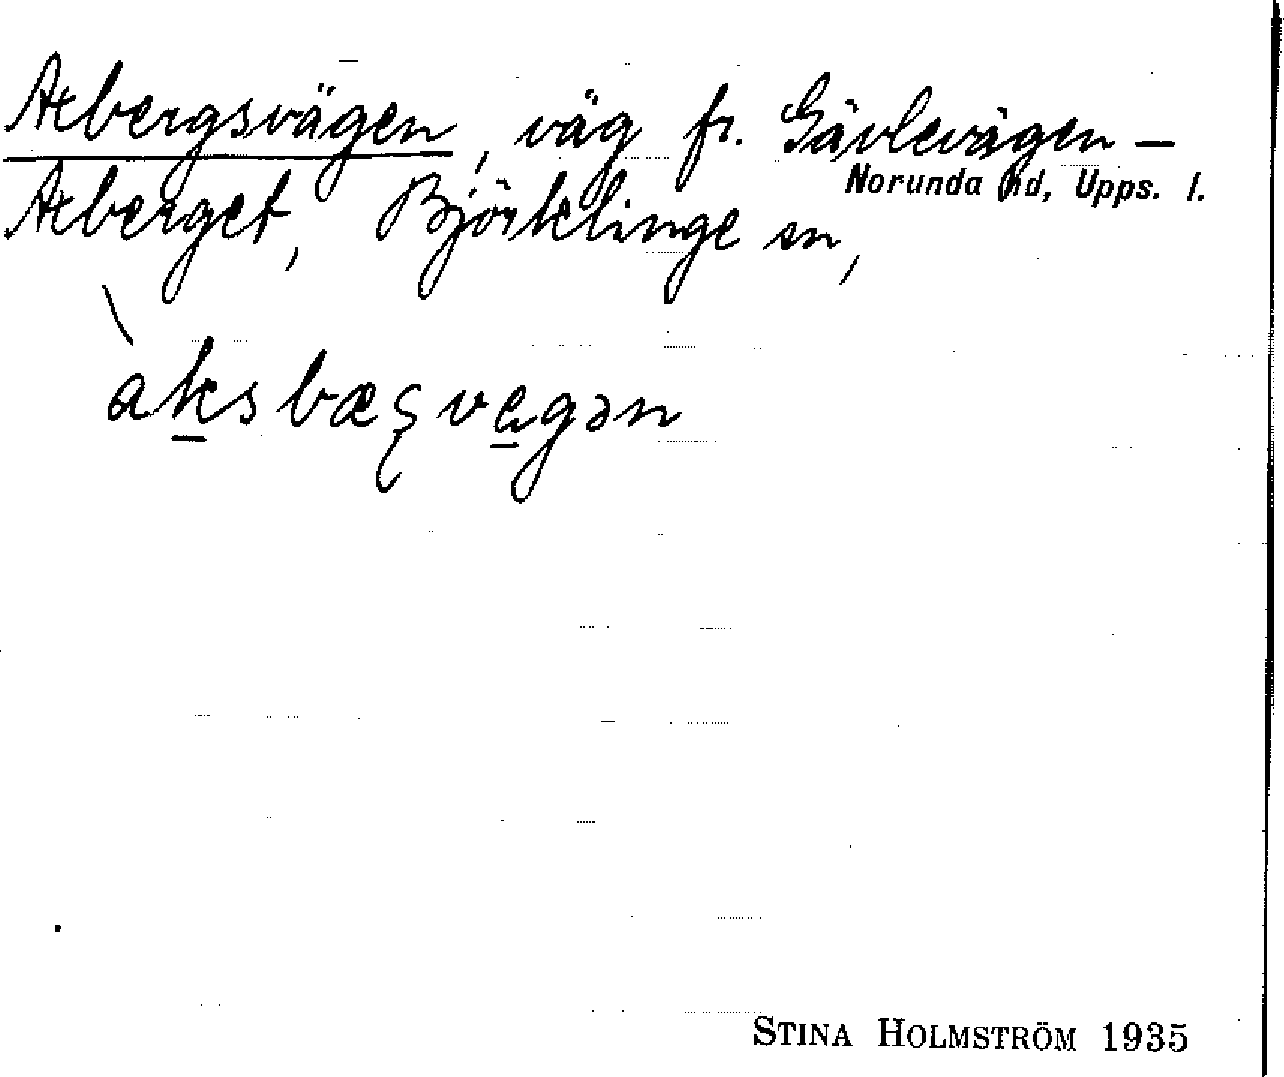 Axbergsvägen, väg fr. Gävlevägen –
Norunda hd, Upps. l.
Axberget, Björklinge sn,
àk̲sbæʂve̲gən
STINA HOLMSTRÖM 1935